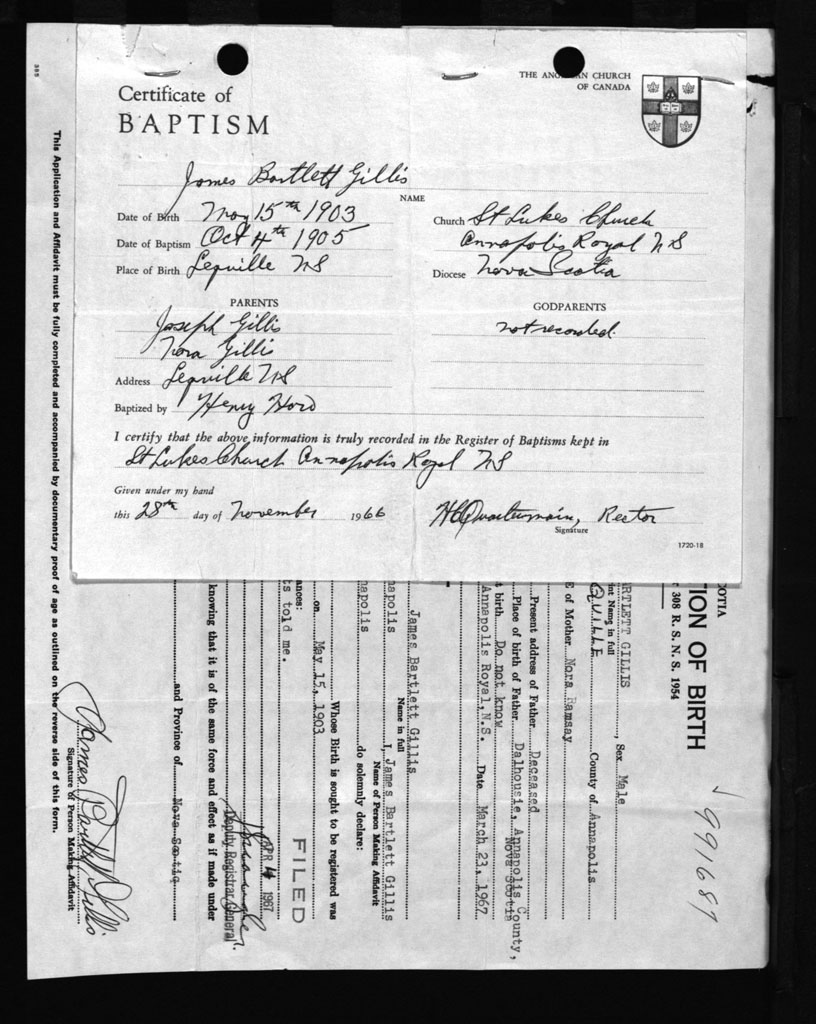 THE ANGLICAN CHURCH
OF CANADA
Certificate of
BAPTISM
James Bartlett Gillis
NAME
Date of Birth May 15th 1903
Date of Baptism Oct 4th 1905
Place of Birth Lequille NS
Church St Lukes Church
Annapolis Royal NS
Diocese Nova Scotia
PARENTS
Joseph Gillis
Nora Gillis
Address Lequille NS
Baptized by Henry How
GODPARENTS
not recorded.
I certify that the above information is truly recorded in the Register of Baptisms kept in
St Lukes Church Annapolis Royal NS
Given under my hand
this 28th day of November 1966
H C Quartermain, Rector
Signature
1720-18
395
This Application and Affidavit must be fully completed and accompanied by documentary proof of age as outlined on the reverse side of this form.
991687
COTIA
ION OF BIRTH
308 R. S. N. S. 1954
ARTLETT GILLIS, Sex Male
int Name in full
QUILLE County of Annapolis
E of Mother Nora Ramsay
Present address of Father Deceased
Place of birth of Father Dalhousie, Annapolis County,
Nova Scotia
t birth Do not know
Annapolis Royal, N.S. Date March 23, 1967
James Bartlett Gillis
Name in full
napolis I, James Bartlett Gillis
Name of Person Making Affidavit
napolis do solemnly declare:
Whose Birth is sought to be registered was
on May 15, 1903
ances:
ts told me.
FILED
APR 4 1967
Deputy Registrar General
knowing that it is of the same force and effect as if made under
and Province of Nova Scotia
James Bartlett Gillis
Signature of Person Making Affidavit